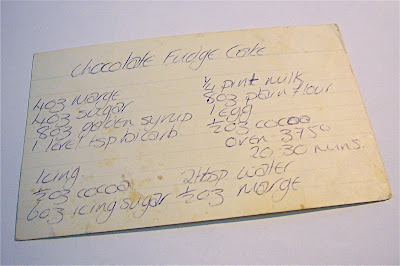 Chocolate Fudge Cake
4oz marge
4oz sugar
8oz golden syrup
1 level tsp bicarb
1/4 pint milk
8oz plain flour
1 egg
1/2oz cocoa
oven 375°
20-30 mins.
Icing
1/2oz cocoa
6oz icing sugar
2tbsp water
1/2oz marge